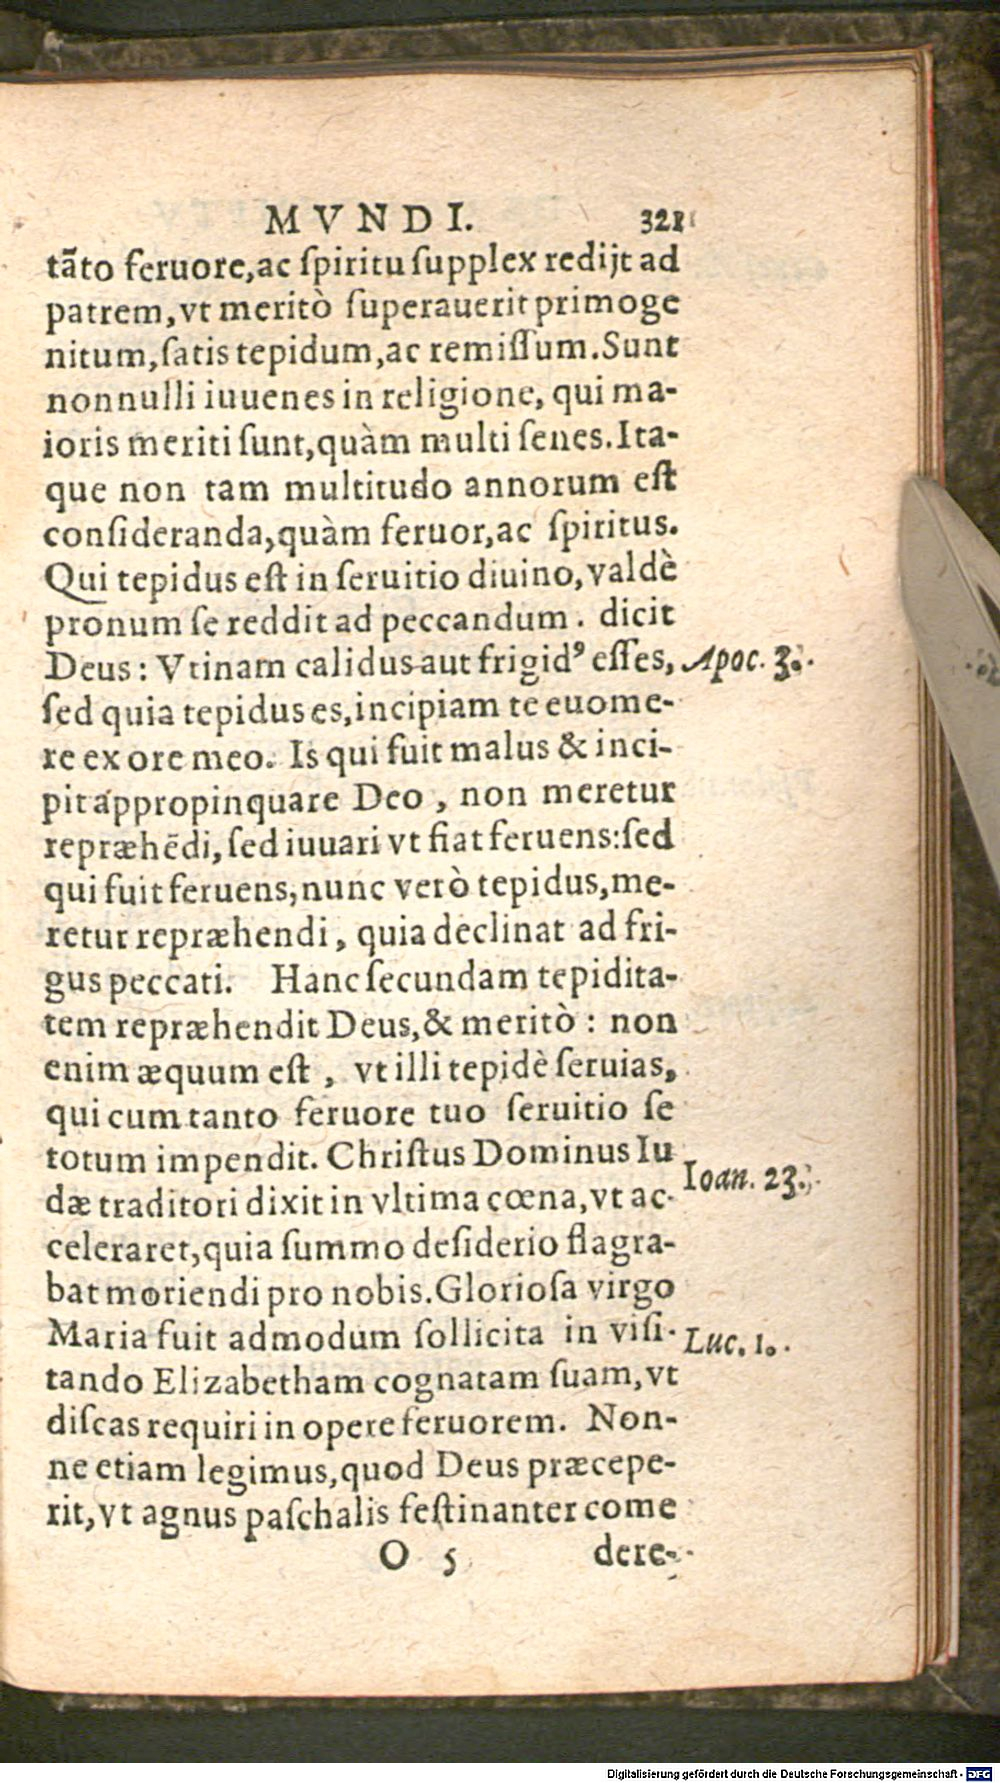 MVNDI. 321
tãto feruore,ac ſpiritu ſupplex redijt ad
patrem,vt meritò ſuperauerit primoge
nitum,ſatis tepidum,ac remiſſum.Sunt
nonnulli iuuenes in religione, qui ma-
ioris meriti ſunt,quàm multi ſenes.Ita-
que non tam multitudo annorum eſt
conſideranda,quàm feruor,ac ſpiritus.
Qui tepidus eſt in ſeruitio diuino,valdè
pronum ſe reddit ad peccandum. dicit
Deus: Vtinam calidus aut frigidꝰ eſſes, Apoc. 3.
ſed quia tepidus es,incipiam te euome-
re ex ore meo. Is qui fuit malus & inci-
pit appropinquare Deo, non meretur
repræhẽdi, ſed iuuari vt fiat feruens:ſed
qui fuit feruens,nunc verò tepidus,me-
retur repræhendi, quia declinat ad fri-
gus peccati. Hanc ſecundam tepidita-
tem repræhendit Deus,& meritò: non
enim æquum eſt, vt illi tepidè ſeruias,
qui cum tanto feruore tuo ſeruitio ſe
totum impendit. Chriſtus Dominus Iu
dæ traditori dixit in vltima cœna,vt ac- Ioan. 23.
celeraret,quia ſummo deſiderio flagra-
bat moriendi pro nobis.Glorioſa virgo
Maria fuit admodum ſollicita in viſi- Luc. 1.
tando Elizabetham cognatam ſuam,vt
diſcas requiri in opere feruorem. Non-
ne etiam legimus,quod Deus præcepe-
rit,vt agnus paſchalis feſtinanter come
O 5 dere-
Digitalisierung gefördert durch die Deutsche Forschungsgemeinschaft - DFG